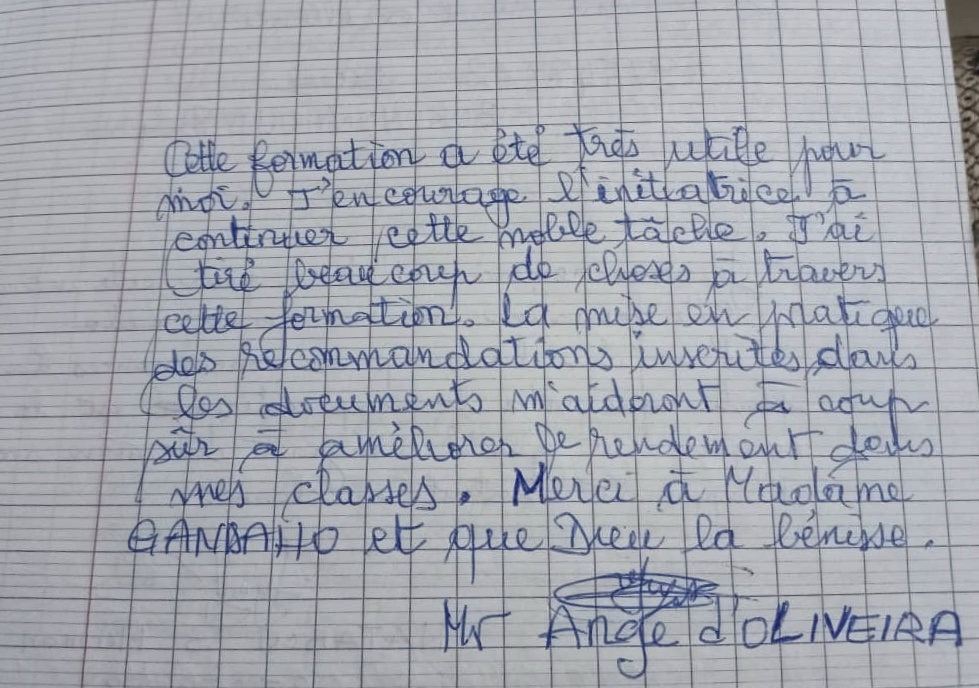 Cette formation a été très utile pour
moi. J'encourage l'initiatrice à
continuer cette noble tâche. J'ai
tiré beaucoup de choses à travers
cette formation. La mise en pratique
des recommandations inscrites dans
les documents m'aideront à coup
sûr à améliorer le rendement dans
mes classes. Merci à Madame
GANDAHO et que Dieu la bénisse.
Mr Ange d'OLIVEIRA